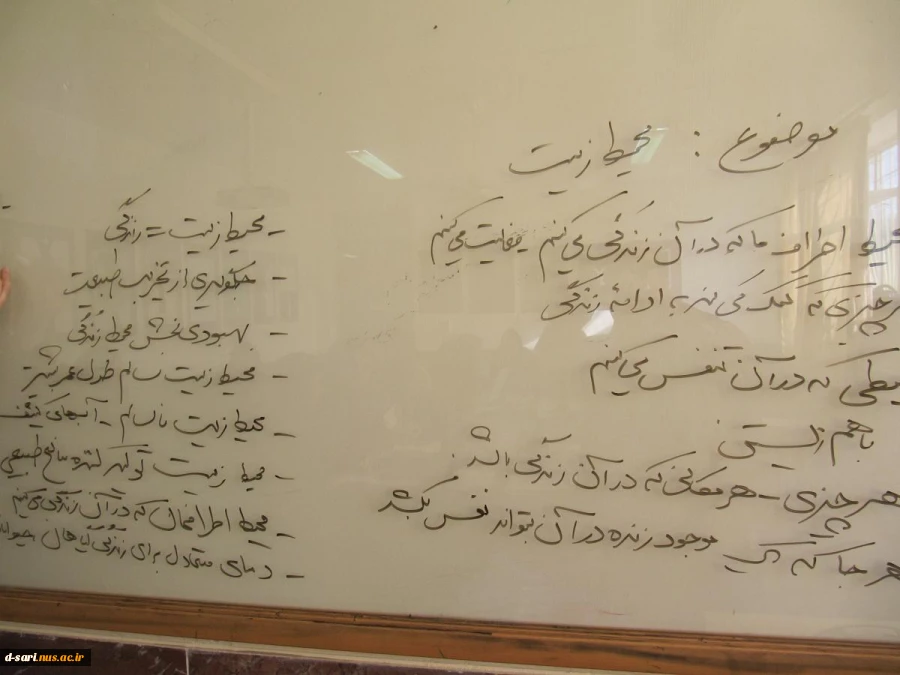 موضوع : محیط زیست
محیط اطراف ما که در آن زندگی می‌کنیم - فعالیت می‌کنیم
هر چیزی که کمک می‌کند به ادامه زندگی
که در آن تنفس می‌کنیم
با هم زیستی
هر چیزی - هر مکانی که در آن زندگی باشد.
هر جا که یک موجود زنده در آن بتواند نفس بکشد
- محیط زیست = زندگی
- جلوگیری از تخریب طبیعت
- بهبودی بخش محیط زندگی
- محیط زیست سالم طول عمر بیشتر
- محیط زیست ناسالم - آبهای کثیف
- محیط زیست منابع طبیعی
- محیط اطرافمان که در آن زندگی می‌کنیم
- دمای متعادل برای زندگی گیاهان
d-sari.nus.ac.ir